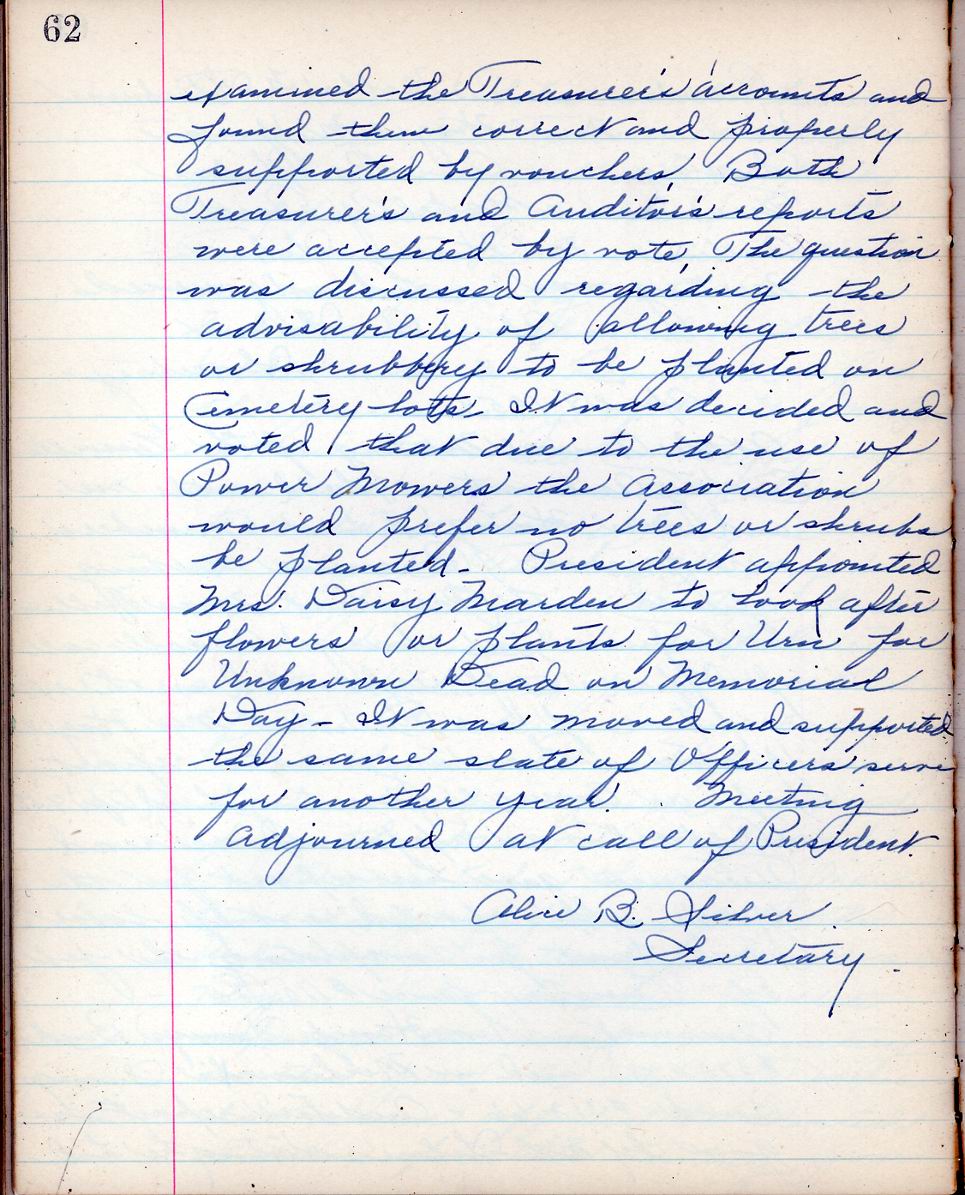 62
examined the Treasurer's accounts and
found them correct and properly
supported by vouchers. Both
Treasurer's and Auditor's reports
were accepted by vote. The question
was discussed regarding the
advisability of allowing trees
or shrubbery to be planted on
Cemetery lots. It was decided and
voted that due to the use of
Power Mowers the Association
would prefer no trees or shrubs
be planted - President appointed
Mrs. Daisy Marden to look after
flowers or plants for Urn for
Unknown Dead on Memorial
Day - It was moved and supported
the same slate of Officers serve
for another year. Meeting
adjourned at call of President.
Alice B. Silver
Secretary.